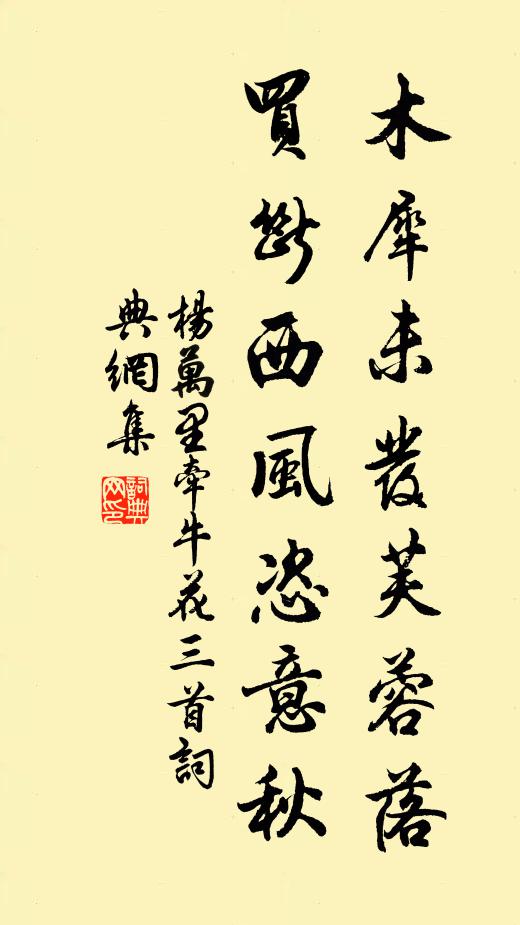 木犀未發芙蓉落
買斷西風恣意秋
楊萬里牽牛花三首詞
典網集
詞典網印